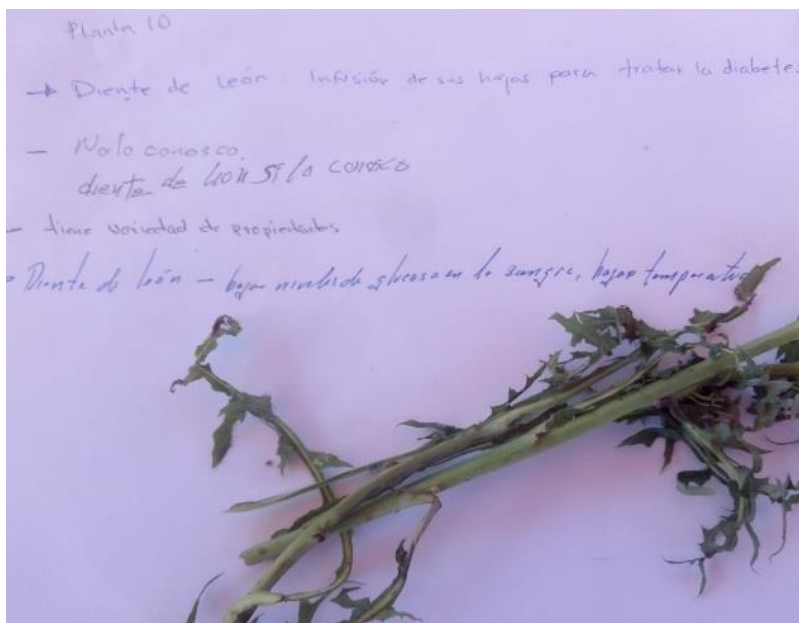 Planta 10
→ Diente de León: Infusión de sus hojas para tratar la diabetes
- No lo conosco.
diente de león si lo conosco
- tiene variedad de propiedades
Diente de león - bajar niveles de glucosa en la sangre, bajar temperatura